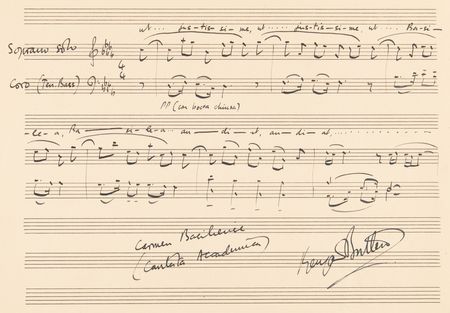 ut . . . jus-tis-si-me, ut . . . jus-tis-si-me, ut . . Ba-si-
Soprano solo
Coro (Ten. Bass)
PP (con bocca chiusa)
-le-a, Ba — si-le-a . . . au-di-at, au-di-at, . . . . . . . . . .
Carmen Basiliense
(Cantata Academica)
Benjamin Britten